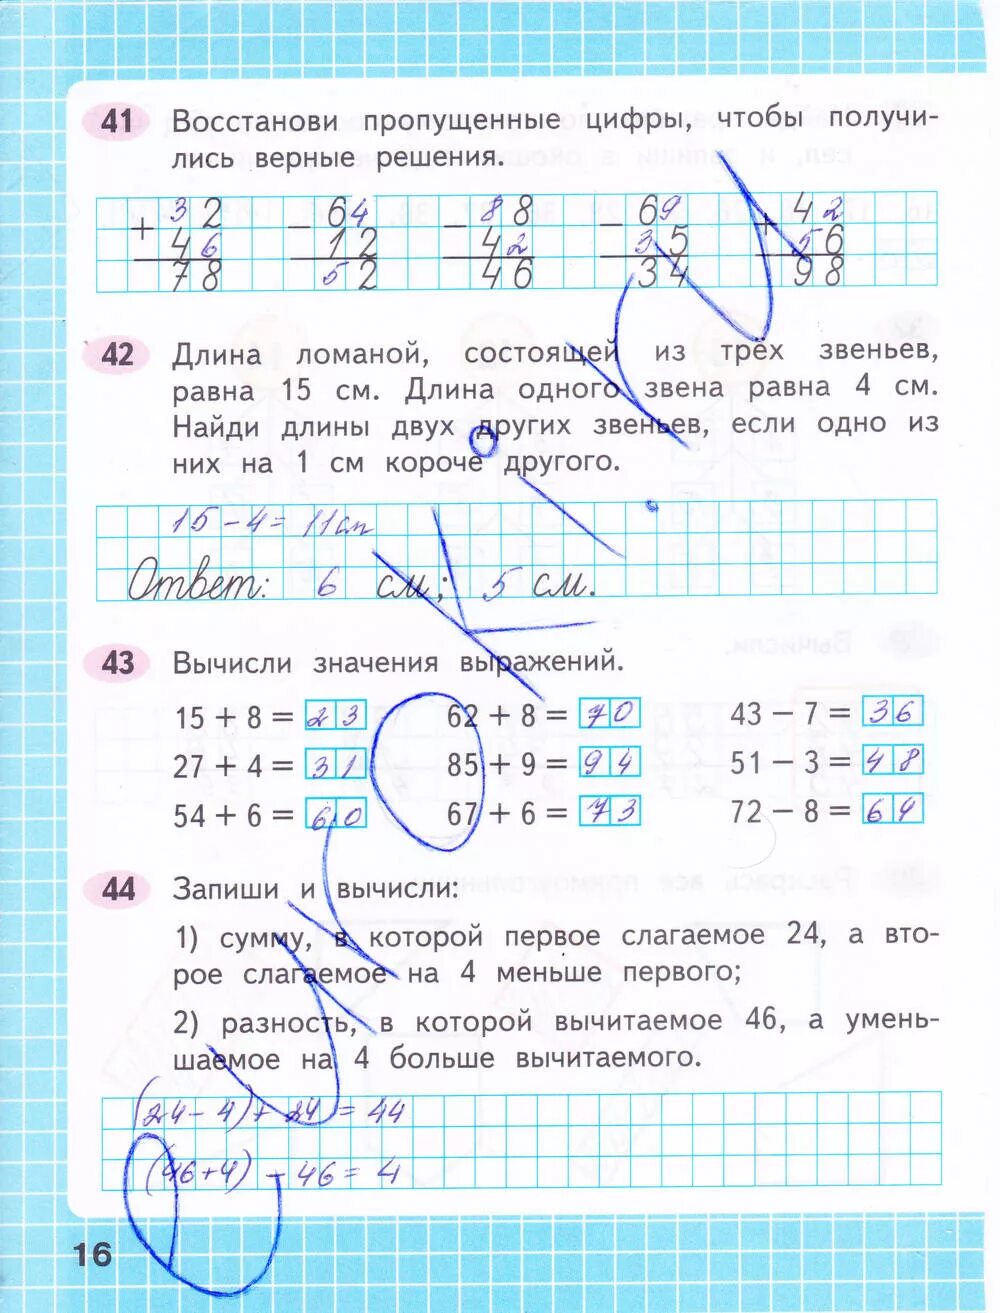 41 Восстанови пропущенные цифры, чтобы получи-
лись верные решения.
+ 32 − 64 − 88 − 69 + 42
46 12 42 35 56
78 52 46 34 98
42 Длина ломаной, состоящей из трёх звеньев,
равна 15 см. Длина одного звена равна 4 см.
Найди длины двух других звеньев, если одно из
них на 1 см короче другого.
15 − 4 = 11 см
Ответ: 6 см; 5 см.
43 Вычисли значения выражений.
15 + 8 = 23 62 + 8 = 70 43 − 7 = 36
27 + 4 = 31 85 + 9 = 94 51 − 3 = 48
54 + 6 = 60 67 + 6 = 73 72 − 8 = 64
44 Запиши и вычисли:
1) сумму, в которой первое слагаемое 24, а вто-
рое слагаемое на 4 меньше первого;
2) разность, в которой вычитаемое 46, а умень-
шаемое на 4 больше вычитаемого.
(24 − 4) + 24 = 44
(46 + 4) − 46 = 4
16